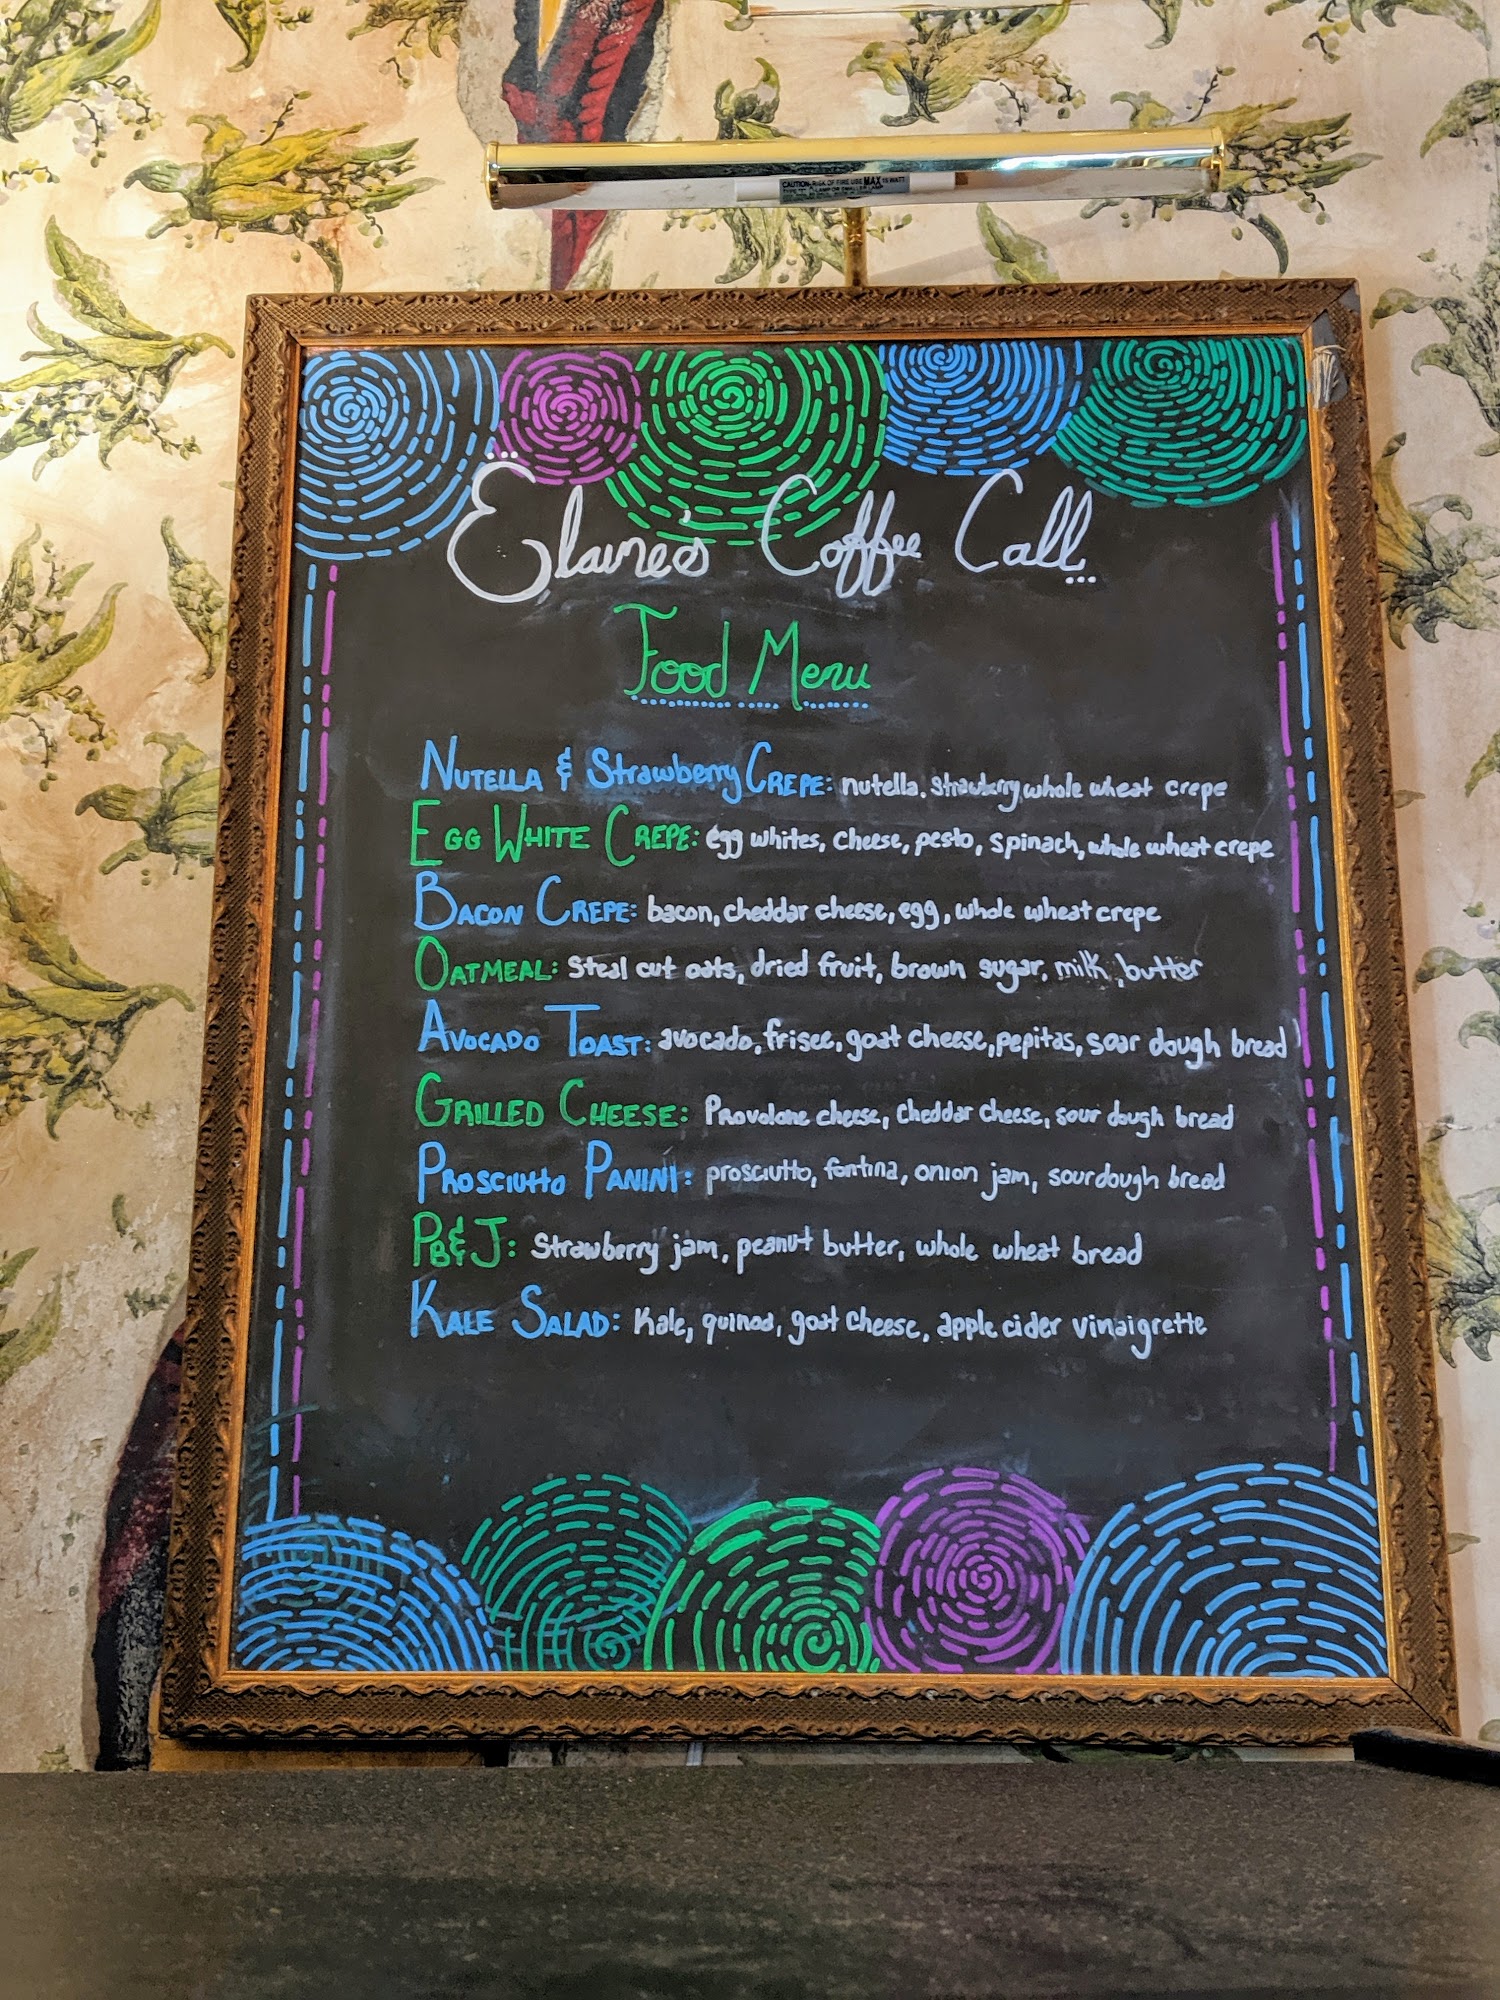 CAUTION: RISK OF FIRE USE MAX 15 WATT
Elaine's Coffee Call
Food Menu
NUTELLA & Strawberry CREPE: nutella, strawberry whole wheat crepe
EGG WHITE CREPE: egg whites, cheese, pesto, spinach, whole wheat crepe
BACON CREPE: bacon, cheddar cheese, egg, whole wheat crepe
OATMEAL: Steal cut oats, dried fruit, brown sugar, milk, butter
AVOCADO TOAST: avocado, frisee, goat cheese, pepitas, soar dough bread
GRILLED CHEESE: Provolone cheese, cheddar cheese, sour dough bread
PROSCIUTTO PANINI: prosciutto, fontina, onion jam, sourdough bread
PB&J: Strawberry jam, peanut butter, whole wheat bread
KALE SALAD: Kale, quinoa, goat cheese, apple cider vinaigrette